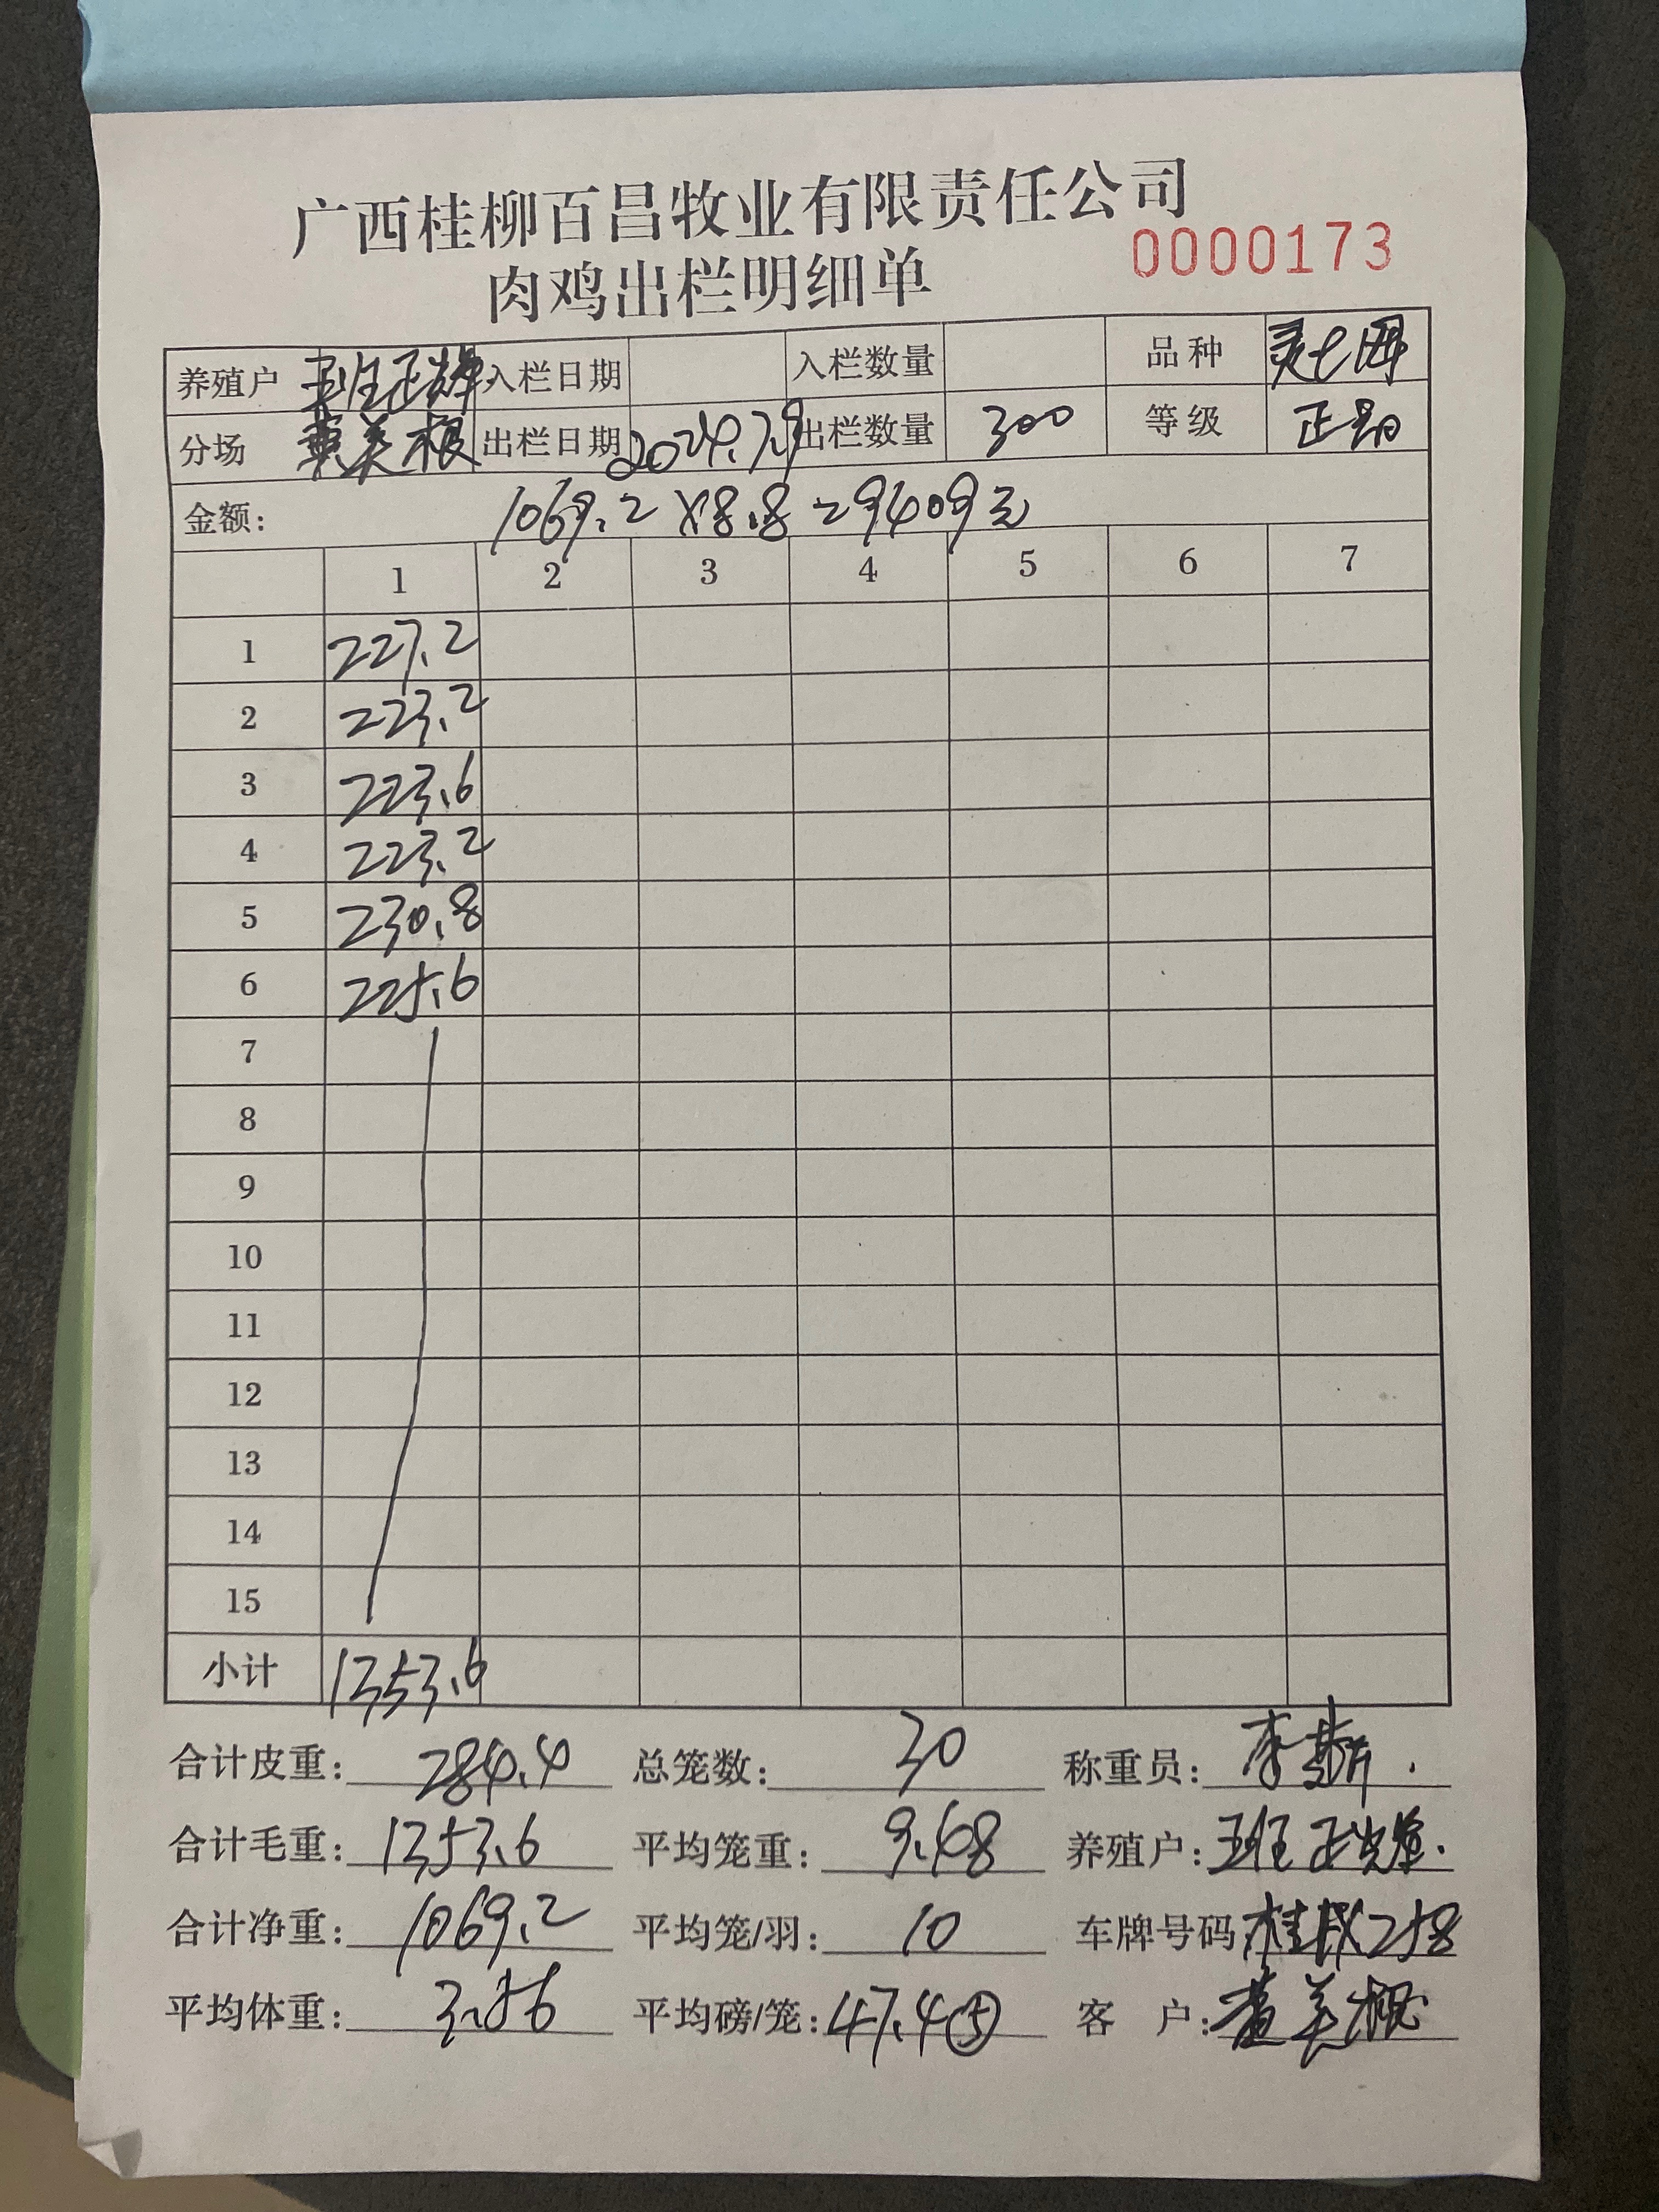 广西桂柳百昌牧业有限责任公司
0000173
肉鸡出栏明细单
养殖户 班正 入栏日期 入栏数量 品种
分场 美根 出栏日期 2024.7.9 出栏数量 300 等级 正
金额: 1069.2×8.8=9409元
1 2 3 4 5 6 7
1 227.2
2 223.2
3 223.6
4 223.2
5 230.8
6 225.6
7
8
9
10
11
12
13
14
15
小计 1353.6
合计皮重: 284.4 总笼数: 30 称重员: 李
合计毛重: 1353.6 平均笼重: 9.48 养殖户: 班正
合计净重: 1069.2 平均笼/羽: 10 车牌号码 桂 258
平均体重: 3.56 平均磅/笼: 47.4⑤ 客 户: 美根